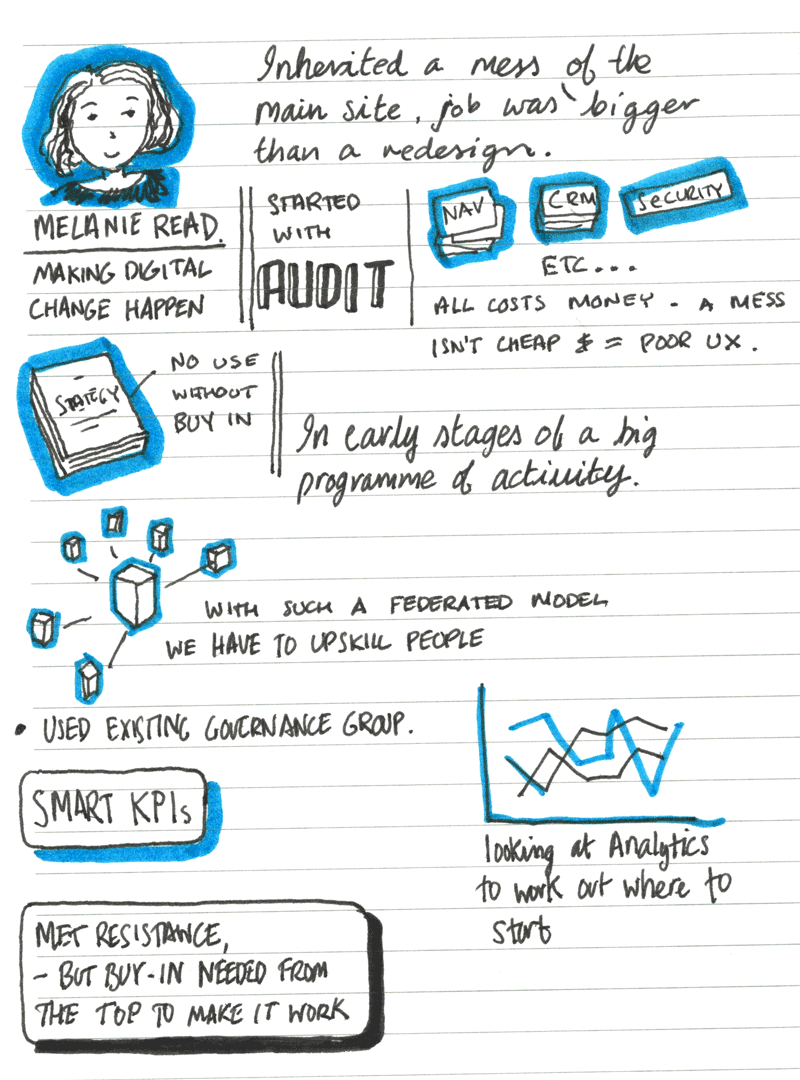 Inherited a mess of the
main site, job was bigger
than a redesign.
MELANIE READ.
MAKING DIGITAL
CHANGE HAPPEN
STARTED
WITH
AUDIT
NAV
CRM
SECURITY
ETC...
ALL COSTS MONEY - A MESS
ISN'T CHEAP $ = POOR UX.
STATEGY
NO USE
WITHOUT
BUY IN
In early stages of a big
programme of activity.
WITH SUCH A FEDERATED MODEL
WE HAVE TO UPSKILL PEOPLE
• USED EXISTING GOVERNANCE GROUP.
SMART KPIs
looking at Analytics
to work out where to
start
MET RESISTANCE,
- BUT BUY-IN NEEDED FROM
THE TOP TO MAKE IT WORK